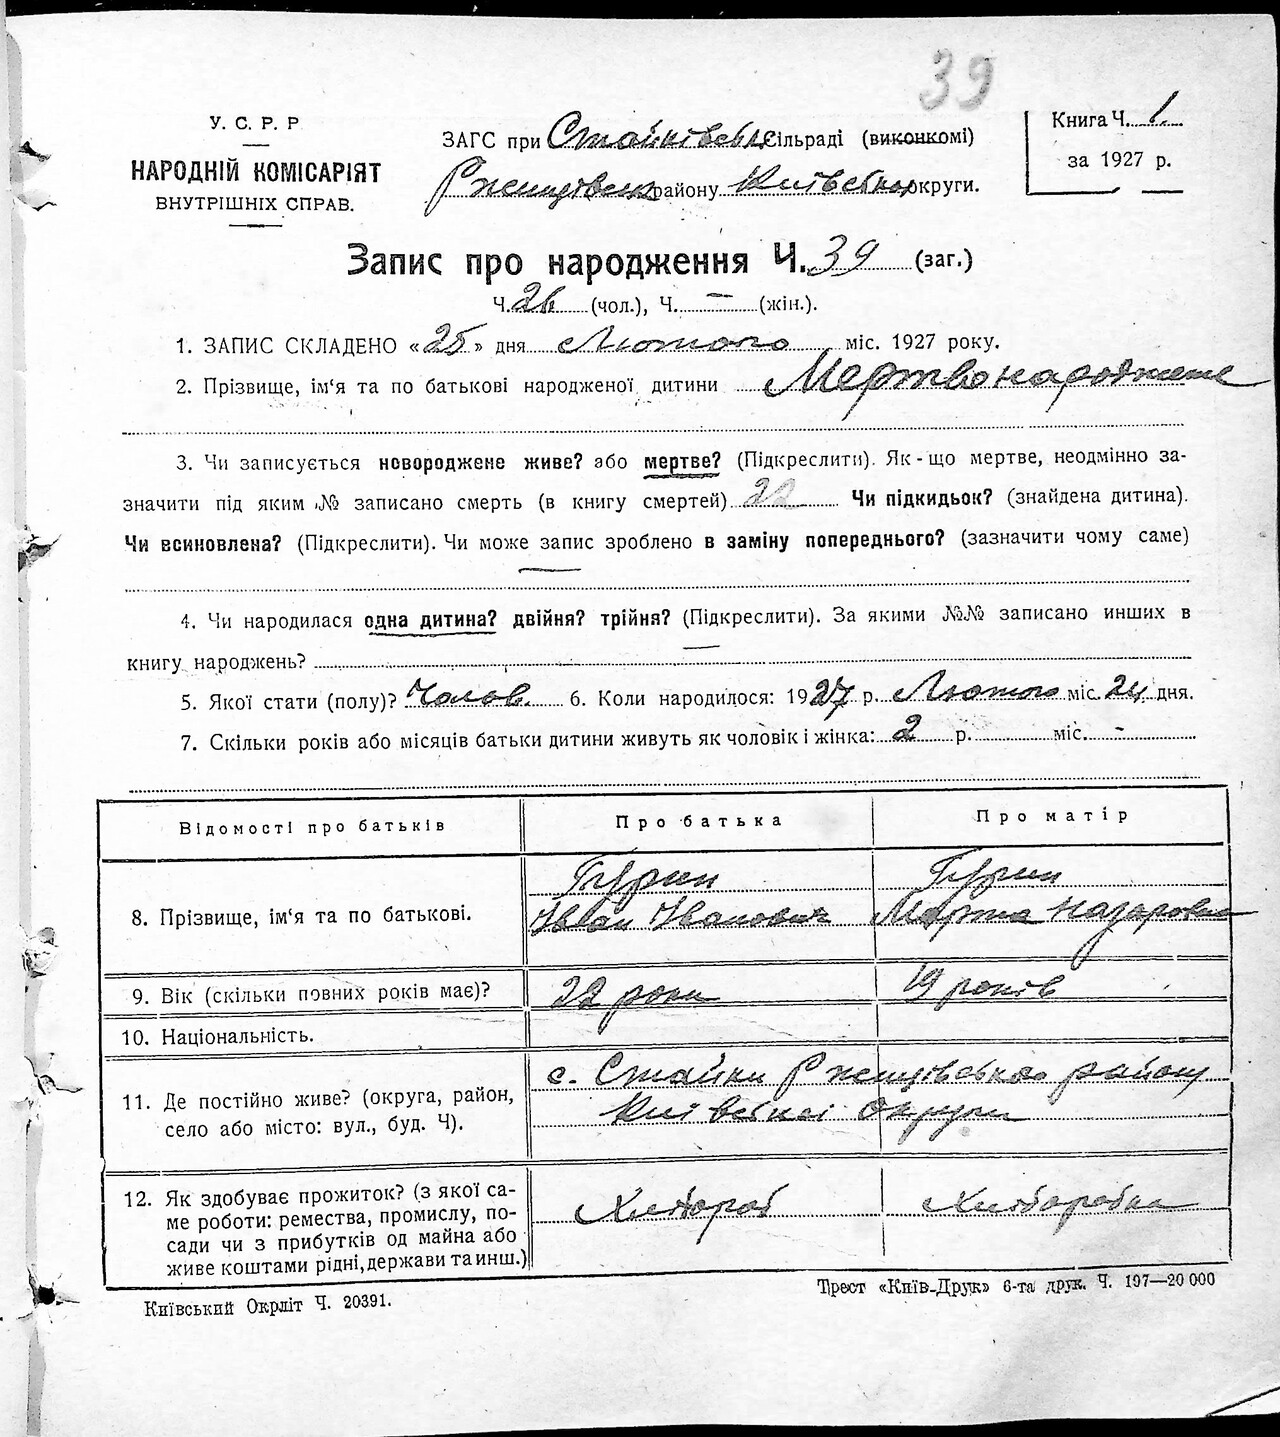 39
У. С. Р. Р
НАРОДНІЙ КОМІСАРІЯТ
ВНУТРІШНІХ СПРАВ.
ЗАГС при Стайківській сільраді (виконкомі)
Ржищівськ району Київської округи.
Книга Ч. 1
за 1927 р.
Запис про народження Ч. 39 (заг.)
Ч. 26 (чол.), Ч. — (жін.).
1. ЗАПИС СКЛАДЕНО «25» дня Лютого міс. 1927 року.
2. Прізвище, ім‘я та по батькові народженої дитини Мертвонароджене
3. Чи записується новороджене живе? або мертве? (Підкреслити). Як-що мертве, неодмінно за-
значити під яким № записано смерть (в книгу смертей) 22 Чи підкидьок? (знайдена дитина).
Чи всиновлена? (Підкреслити). Чи може запис зроблено в заміну попереднього? (зазначити чому саме)
—
4. Чи народилася одна дитина? двійня? трійня? (Підкреслити). За якими №№ записано инших в
книгу народжень? —
5. Якої стати (полу)? Чолов. 6. Коли народилося: 1927 р. Лютого міс. 24 дня.
7. Скільки років або місяців батьки дитини живуть як чоловік і жінка: 2 р. міс. -
Відомості про батьків Про батька Про матір
8. Прізвище, ім‘я та по батькові. Гурин Гурин
Іван Іванович Марта Назаровна
9. Вік (скільки повних років має)? 22 роки 19 років
10. Національність.
11. Де постійно живе? (округа, район,
село або місто: вул., буд. Ч).
с. Стайки Ржищівського району
Київської округи
12. Як здобуває прожиток? (з якої са-
ме роботи: ремества, промислу, по-
сади чи з прибутків од майна або
живе коштами рідні, держави та инш.)
Хлібороб Хліборобка
Київський Окрліт Ч. 20391.
Трест «Київ-Друк» 6-та друк. Ч. 197—20 000